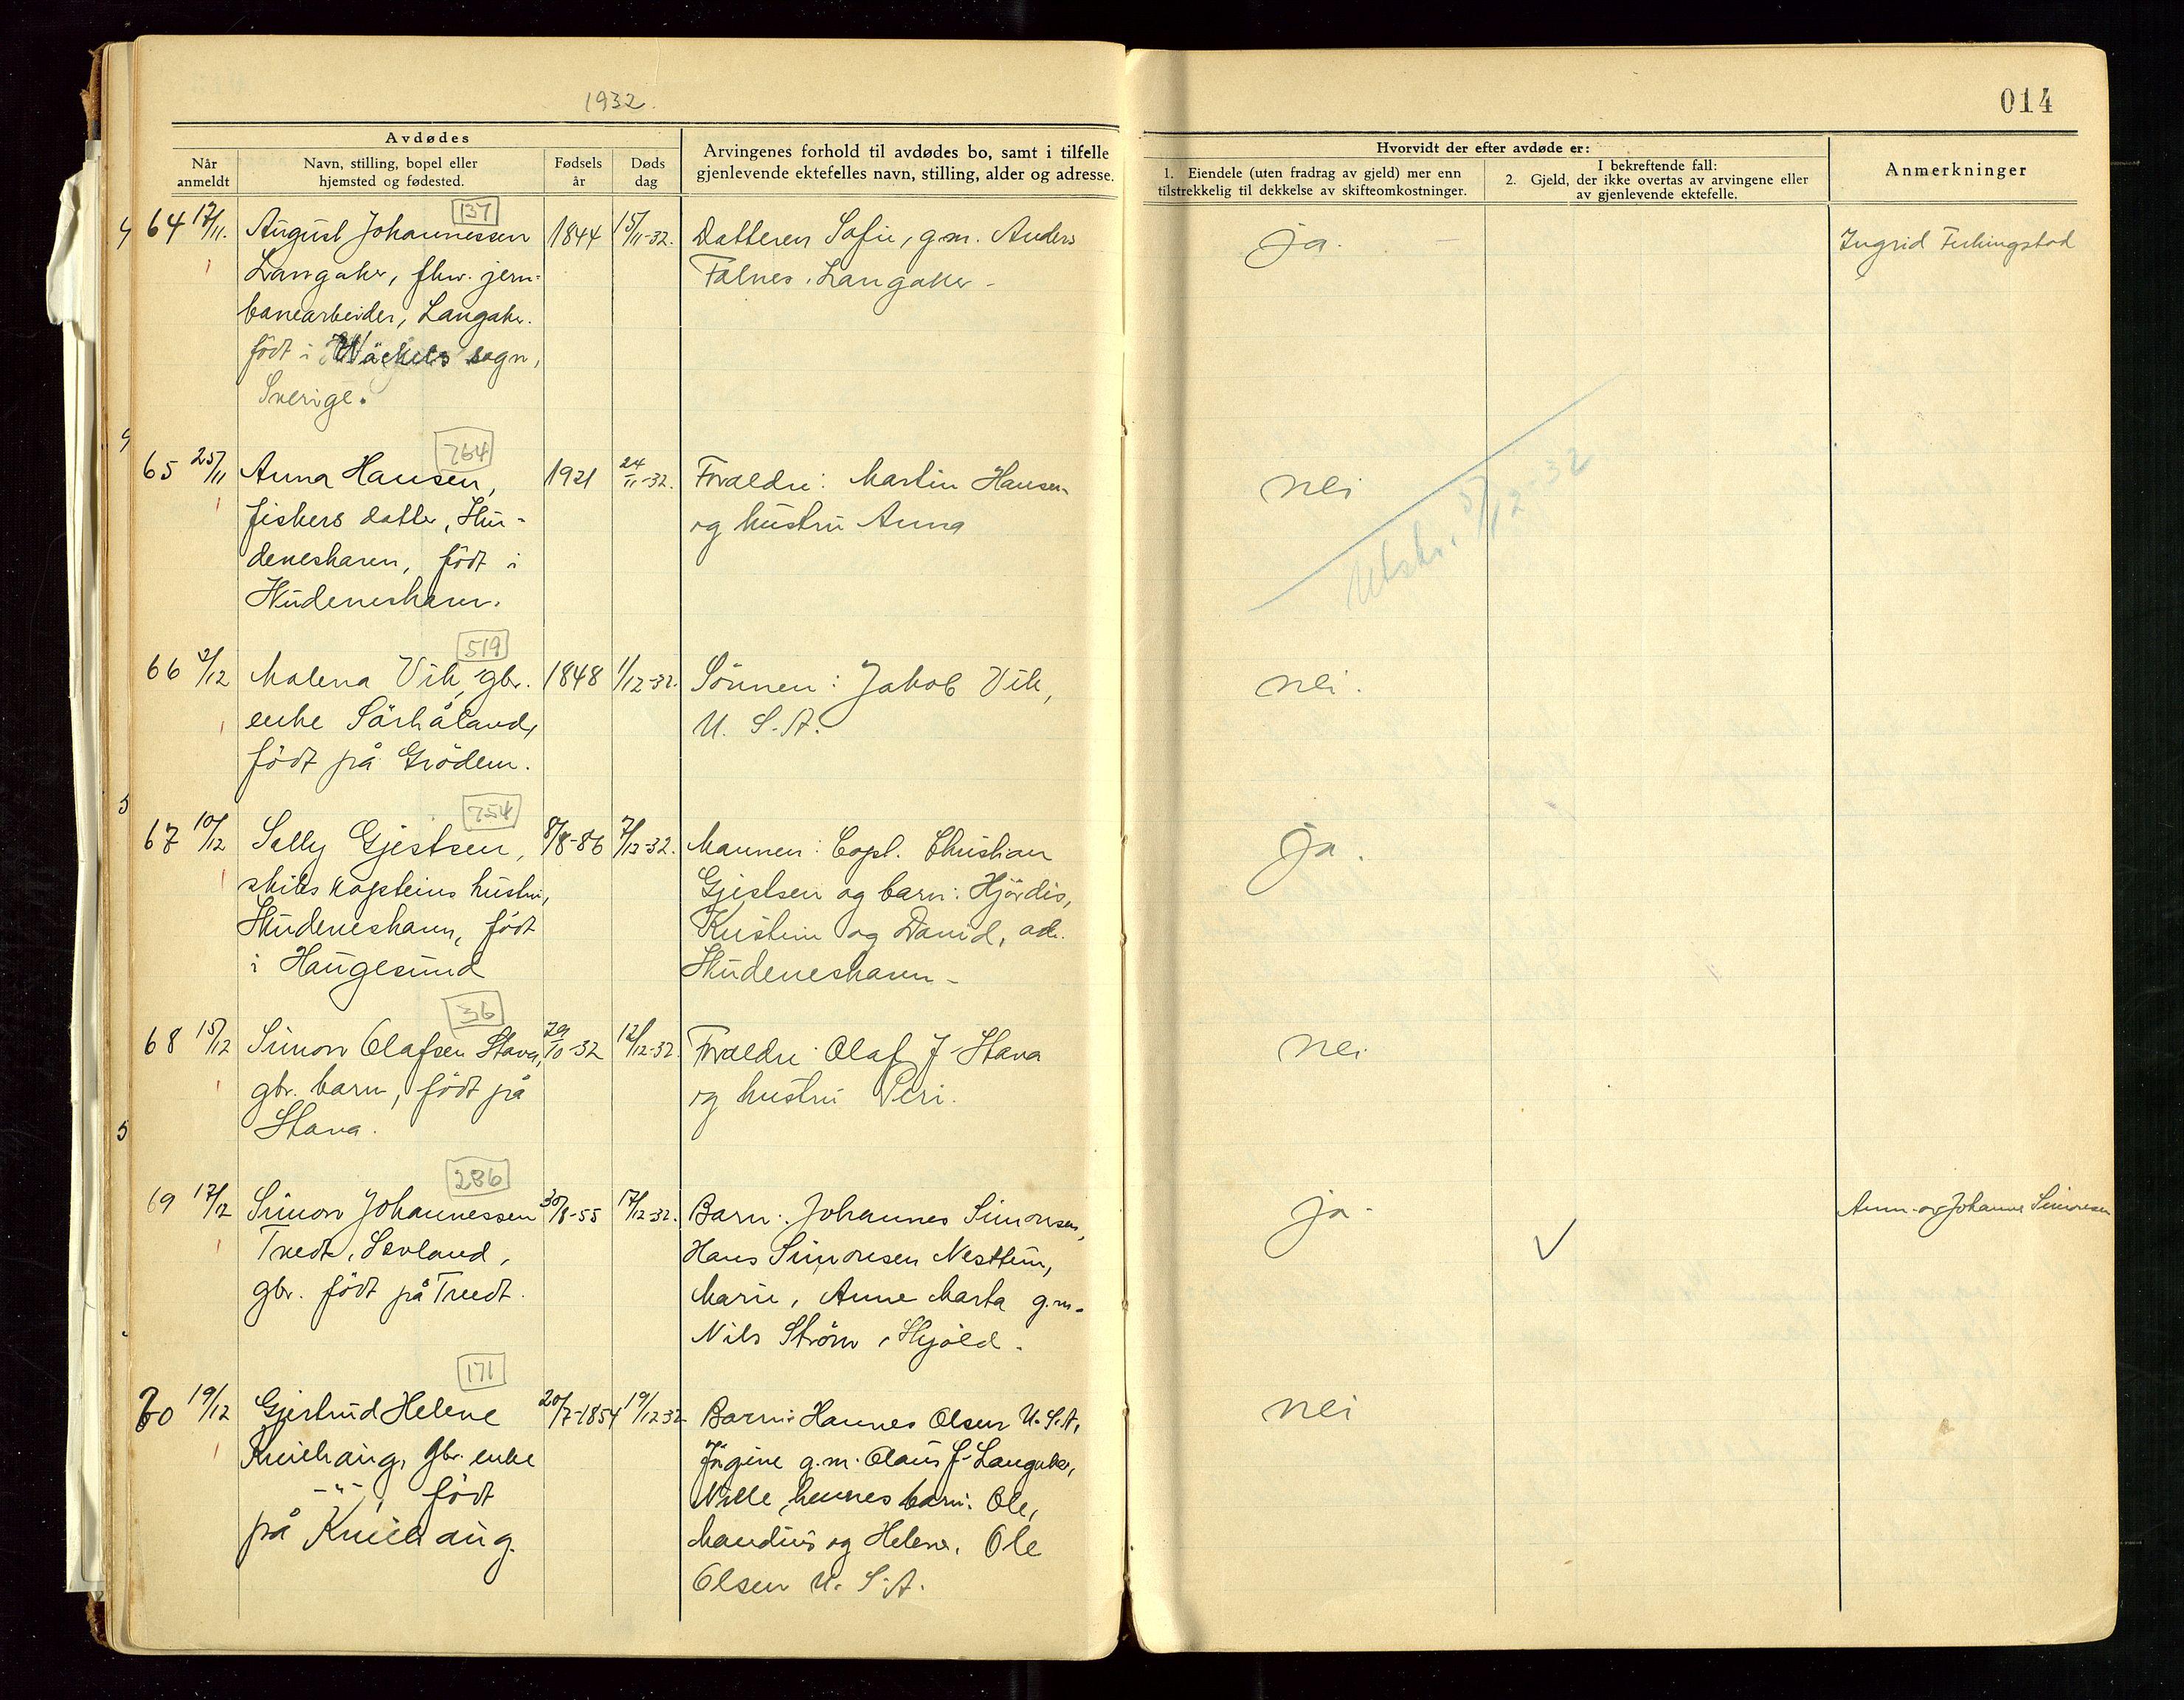 1932.
014
Avdødes
Når
anmeldt
Navn, stilling, bopel eller
hjemsted og fødested.
Fødsels
år
Døds
dag
Arvingenes forhold til avdødes bo, samt i tilfelle
gjenlevende ektefelles navn, stilling, alder og adresse.
Hvorvidt der efter avdøde er:
1. Eiendele (uten fradrag av gjeld) mer enn
tilstrekkelig til dekkelse av skifteomkostninger.
I bekreftende fall:
2. Gjeld, der ikke overtas av arvingene eller
av gjenlevende ektefelle.
Anmerkninger
137
64 17/11. August Johannessen 1844 15/11-32. Datteren Sofie, g.m. Anders ja. Ingrid
Langaker, fhv. jern- Falnes, Langaker -
banearbeider, Langaker.
født i sogn,
Sverige.
764
65 25/11 Anna Hansen, 1921 24/11-32. Foreldre: Martin Hansen nei
fiskers datter, Sku- og hustru Anna
deneshavn, født i
Skudeneshavn.
Utskr. 5/12-32
519
66 2/12 Malena Vik, gbr. 1848 1/12-32. Sönnen: Jakob Vik, nei.
enke Sörhåland, U. S. A.
född på Grödem.
754
67 10/12 Selly Gjestsen, 8/8-86 7/12-32. Mannen: Capt. Christian ja.
skibskapteins hustru, Gjestsen og barn: Hjördis,
Skudeneshavn, født Kristine og David, ad.
i Haugesund Skudeneshavn -
36
68 15/12 Simon Olafsen Stava, 29/10-32 12/12-32. Foreldre Olaf J. Stava nei
gbr. barn, født på og hustru Peri.
Stava.
286
69 17/12 Simon Johannessen 30/8-55 17/12-32. Barn: Johannes Simonsen, ja - Anm. av Johannes Simonsen
Tvedt, Sevland, Hans Simonsen Nesttun,
gbr. født på Tvedt. Marie, Anne Marta g.m.
Nils Ström, Skjold.
171
70 19/12 Gjertrud Helene 20/7-1854 19/12-32 Barn: Hannes Olsen U.S.A, nei
Kvilhaug, gbr. enke g.m. Olaus J. Langaker,
-"-, født Nille, hennes barn: Ole,
på Kvilhaug. Mandius og Helene. Ole
Olsen U. S. A.